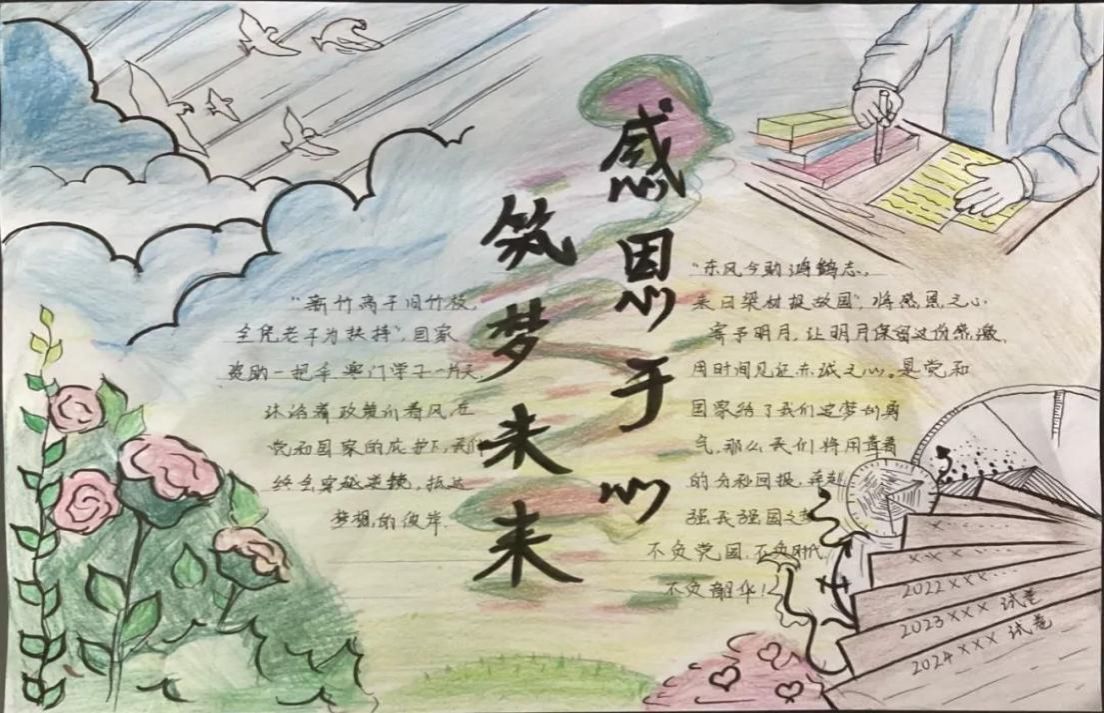 感恩于心
筑梦未来
"新竹高于旧竹枝,
全凭老干为扶持",国家
资助一把伞,寒门学子一片天
沐浴着政策的春风,在
党和国家的庇护下,我们
终会穿越逆境,抵达
梦想的彼岸.
"东风今助鸿鹄志,
来日梁材报故国",将感恩之心
寄予明月,让明月保留这份感激,
用时间见证赤诚之心。是党和
国家给了我们追梦的勇
气,那么我们将用青春
的分秒回报,奔赴
强我强国之梦
不负党国,不负时代,
不负韶华!
×....
×××....
2022×××...
2023×××试卷
2024×××试卷